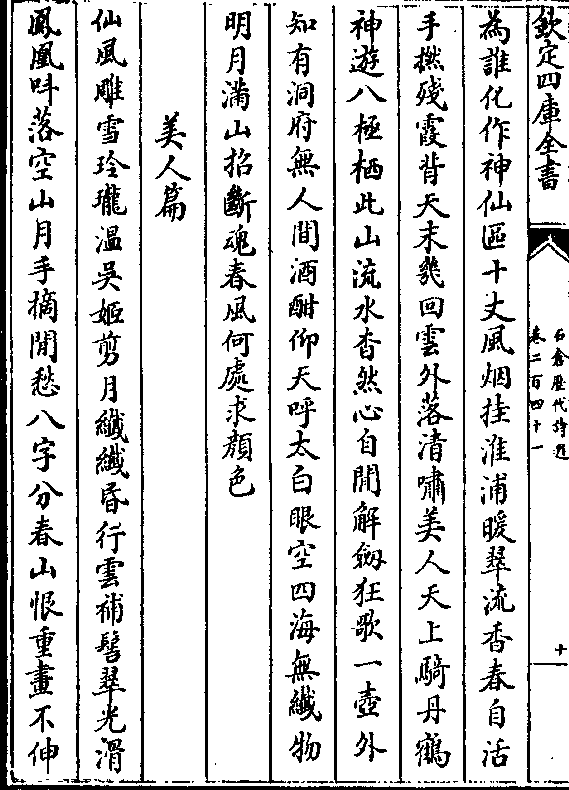 欽定四庫全書
石倉歷代詩選
卷二百四十一
十
為誰化作神仙區十丈風烟挂淮浦暖翠流香春自活
手撚殘霞背天末幾回雲外落清嘯美人天上騎丹鶴
神遊八極栖此山流水杳然心自閒解劒狂歌一壺外
知有洞府無人間酒酣仰天呼太白眼空四海無纖物
明月滿山招斷魂春風何處求顔色
美人篇
仙風雕雪玲瓏溫吳姬剪月纖纖昏行雲補髻翠光滑
鳳凰呌落空山月手摘閒愁八字分春山恨重畫不伸